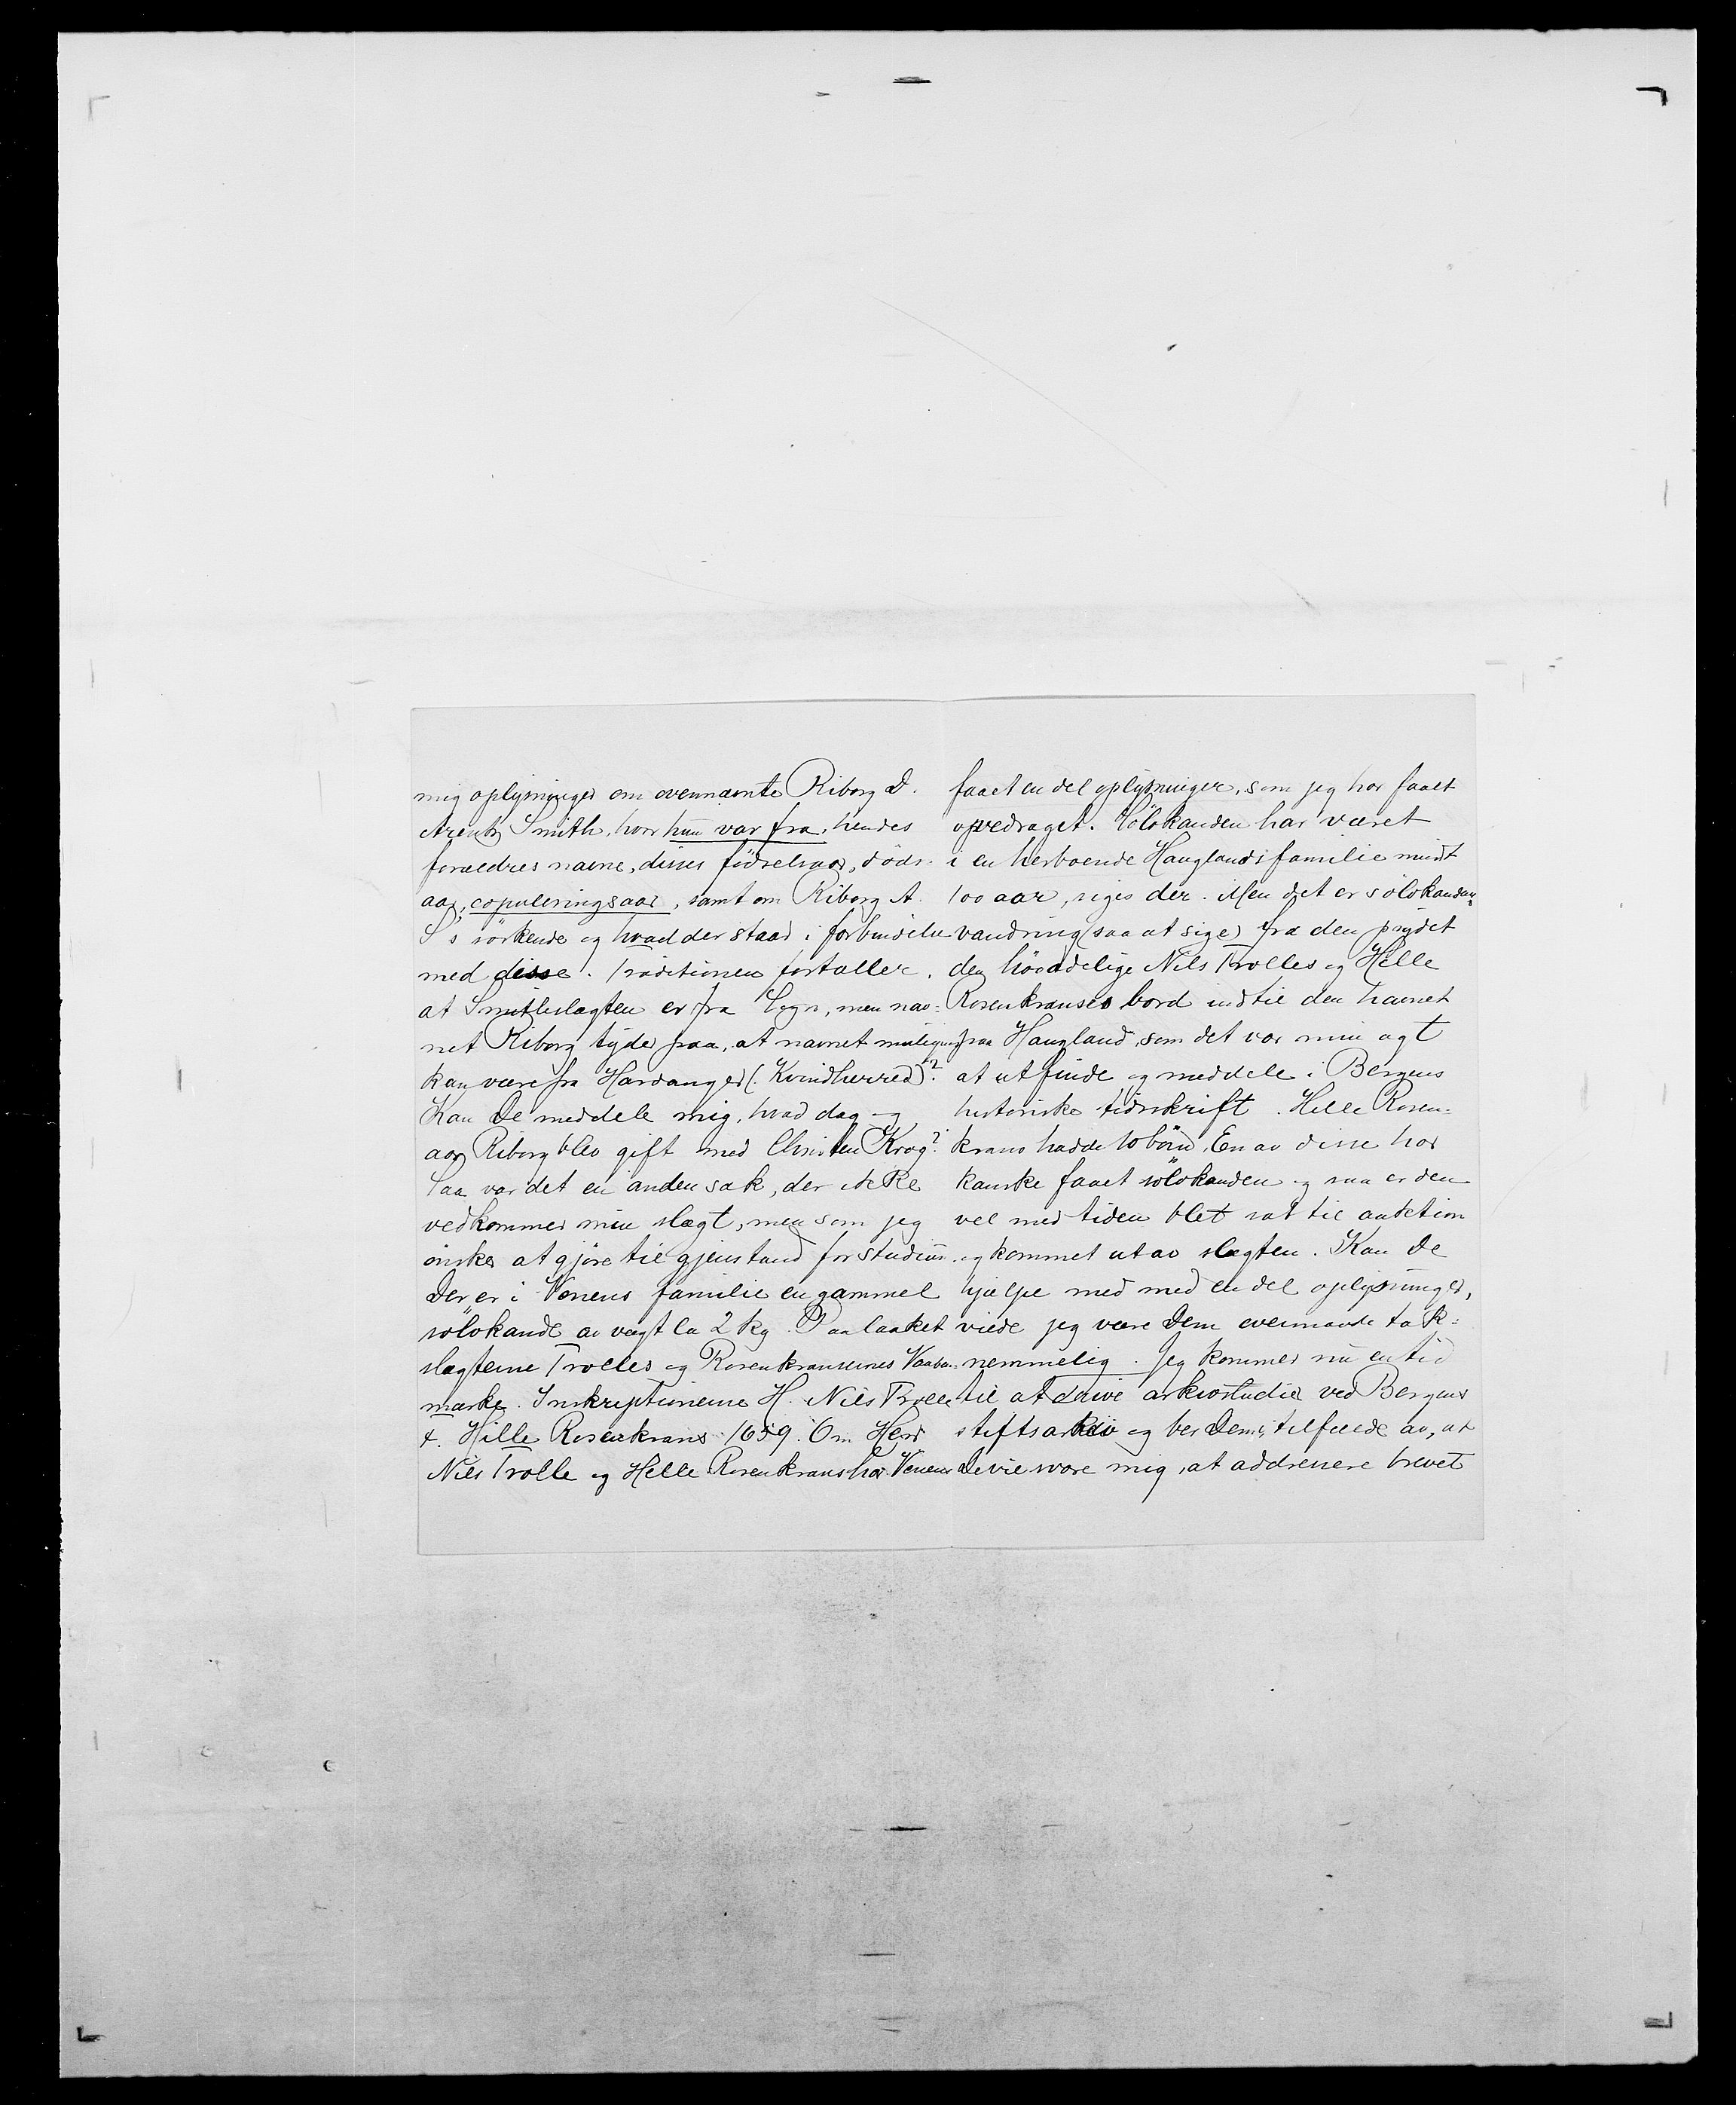 mig oplysninger om ovennævnte Riborg D.
Arentz Smith, hvor hun var fra, hendes
forældres navne, disses födselsaar, döds-
aar, copuleringsaar, samt om Riborg A.
S's sörkende og hvad der staar i forbindelse
med disse. Traditionen fortæller,
at Smithslægten er fra Sogn, men nav-
net Riborg tyder paa, at navnet muligens
kan være fra Hardanger (: Kvindherred)?
Kan De meddele mig, hvad dag og
aar Riborg blev gift med Christen Krog?
Saa var det en anden sak, der ikke
vedkommer min slægt, men som jeg
önsker at gjöre til gjenstand for studium.
Der er i Venens familie en gammel
sölvkande av vægt ca 2 kg. Paa laaket
slægterne Trolles og Rosenkransernes Vaaben-
mærke. Inskriptionerne H. Nils Trolle
&. Hille Rosenkrans 1659. Om Herr
Nils Trolle og Helle Rosenkrans har Venens
faaet en del oplysninger, som jeg har faaet
opredraget. Sölvkanden har været
i en herboende Hauglandsfamilie mindst
100 aar, siges der. Men det er sölvkandens
vandring (saa at sige) fra den prydet
den höiadelige Nils Trolles og Hille
Rosenkranses bord indtil den havnet
paa Haugland, som det var min agt
at utfinde og meddele i Bergens
historiske tidsskrift. Helle Rosen-
krans hadde 10 börn. En av disse har
kanske faaet sölvkanden og saa er den
vel med tiden blet sat til auktion
og kommet ut av slægten. Kan De
hjælpe med med en del oplysninger,
vilde jeg være Dem overmaade tak-
nemmelig. Jeg kommer nu en tid
til at drive arkivstudier ved Bergens
stiftsarkiv og ber Dem, i tilfælde av, at
De vil svare mig, at addressere brevet